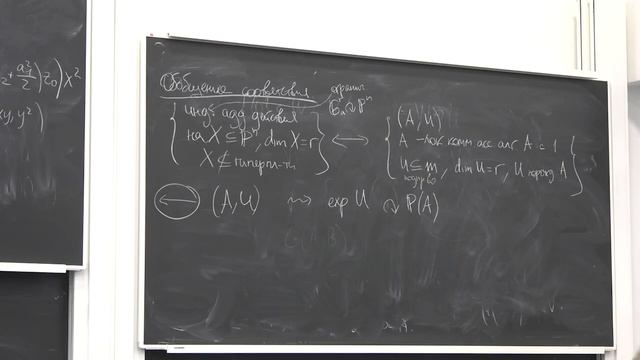 z + a²₁/2) z₀) x²
xy, y²)
Обобщение соответствия
огранич. 𝔾ₐ ↷ ℙⁿ
инд. адд. действия
на X ⊆ ℙⁿ, dim X = r
X ⊄ гиперпл-ти
⟷
(A, U)
A – лок комм асс алг A с 1
U ⊆ m, dim U = r, U порожд A
подпр-во
← (A, U) ⇝ exp U ↷ ℙ(A)